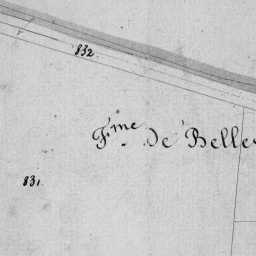 832
F.me de Belle
831